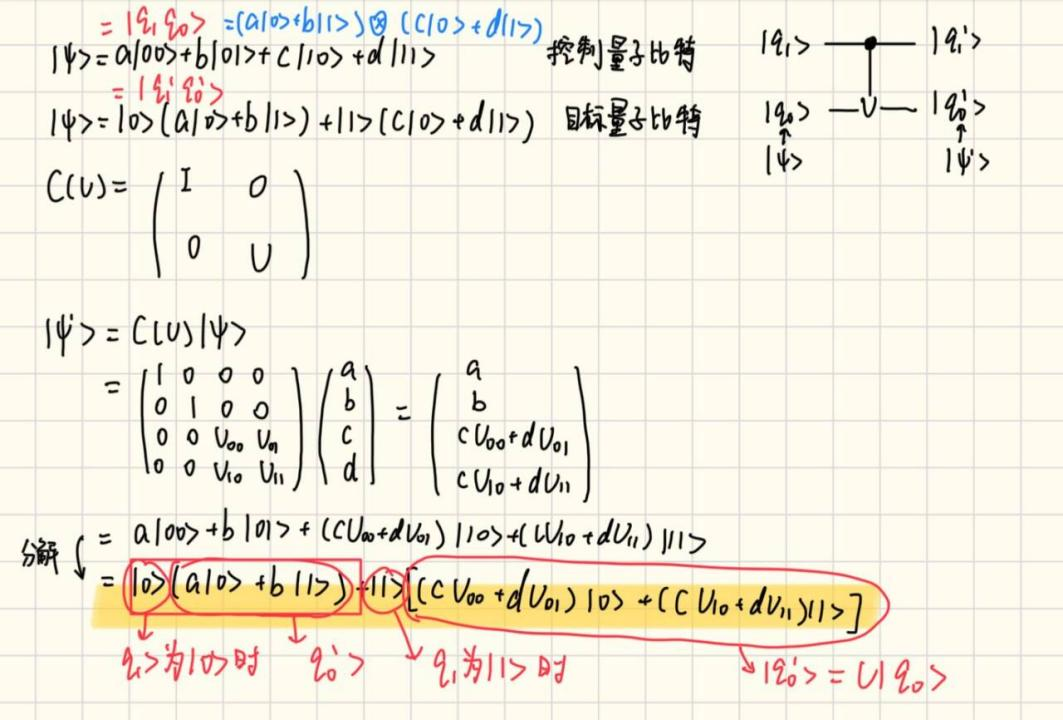 = |q₁q₀> =(a|0>+b|1>)⊗(c|0>+d|1>)
|ψ>=a|00>+b|01>+c|10>+d|11> 控制量子比特
= |q₁'q₀'>
|ψ>=|0>(a|0>+b|1>)+|1>(c|0>+d|1>) 目标量子比特
|q₁> |q₁'>
|q₀> U |q₀'>
↑ ↑
|ψ> |ψ'>
C(U)= ( I 0
0 U )
|ψ'> = C(U)|ψ>
= (1 0 0 0) (a) = (a)
(0 1 0 0) (b) (b)
(0 0 U₀₀ U₀₁) (c) (cU₀₀+dU₀₁)
(0 0 U₁₀ U₁₁) (d) (cU₁₀+dU₁₁)
分解 = a|00>+b|01>+(cU₀₀+dU₀₁)|10>+(cU₁₀+dU₁₁)|11>
= |0>(a|0>+b|1>)+|1>[(cU₀₀+dU₀₁)|0>+(cU₁₀+dU₁₁)|1>]
q₁>为|0>时 q₀'> q₁为|1>时 |q₀'>=U|q₀>